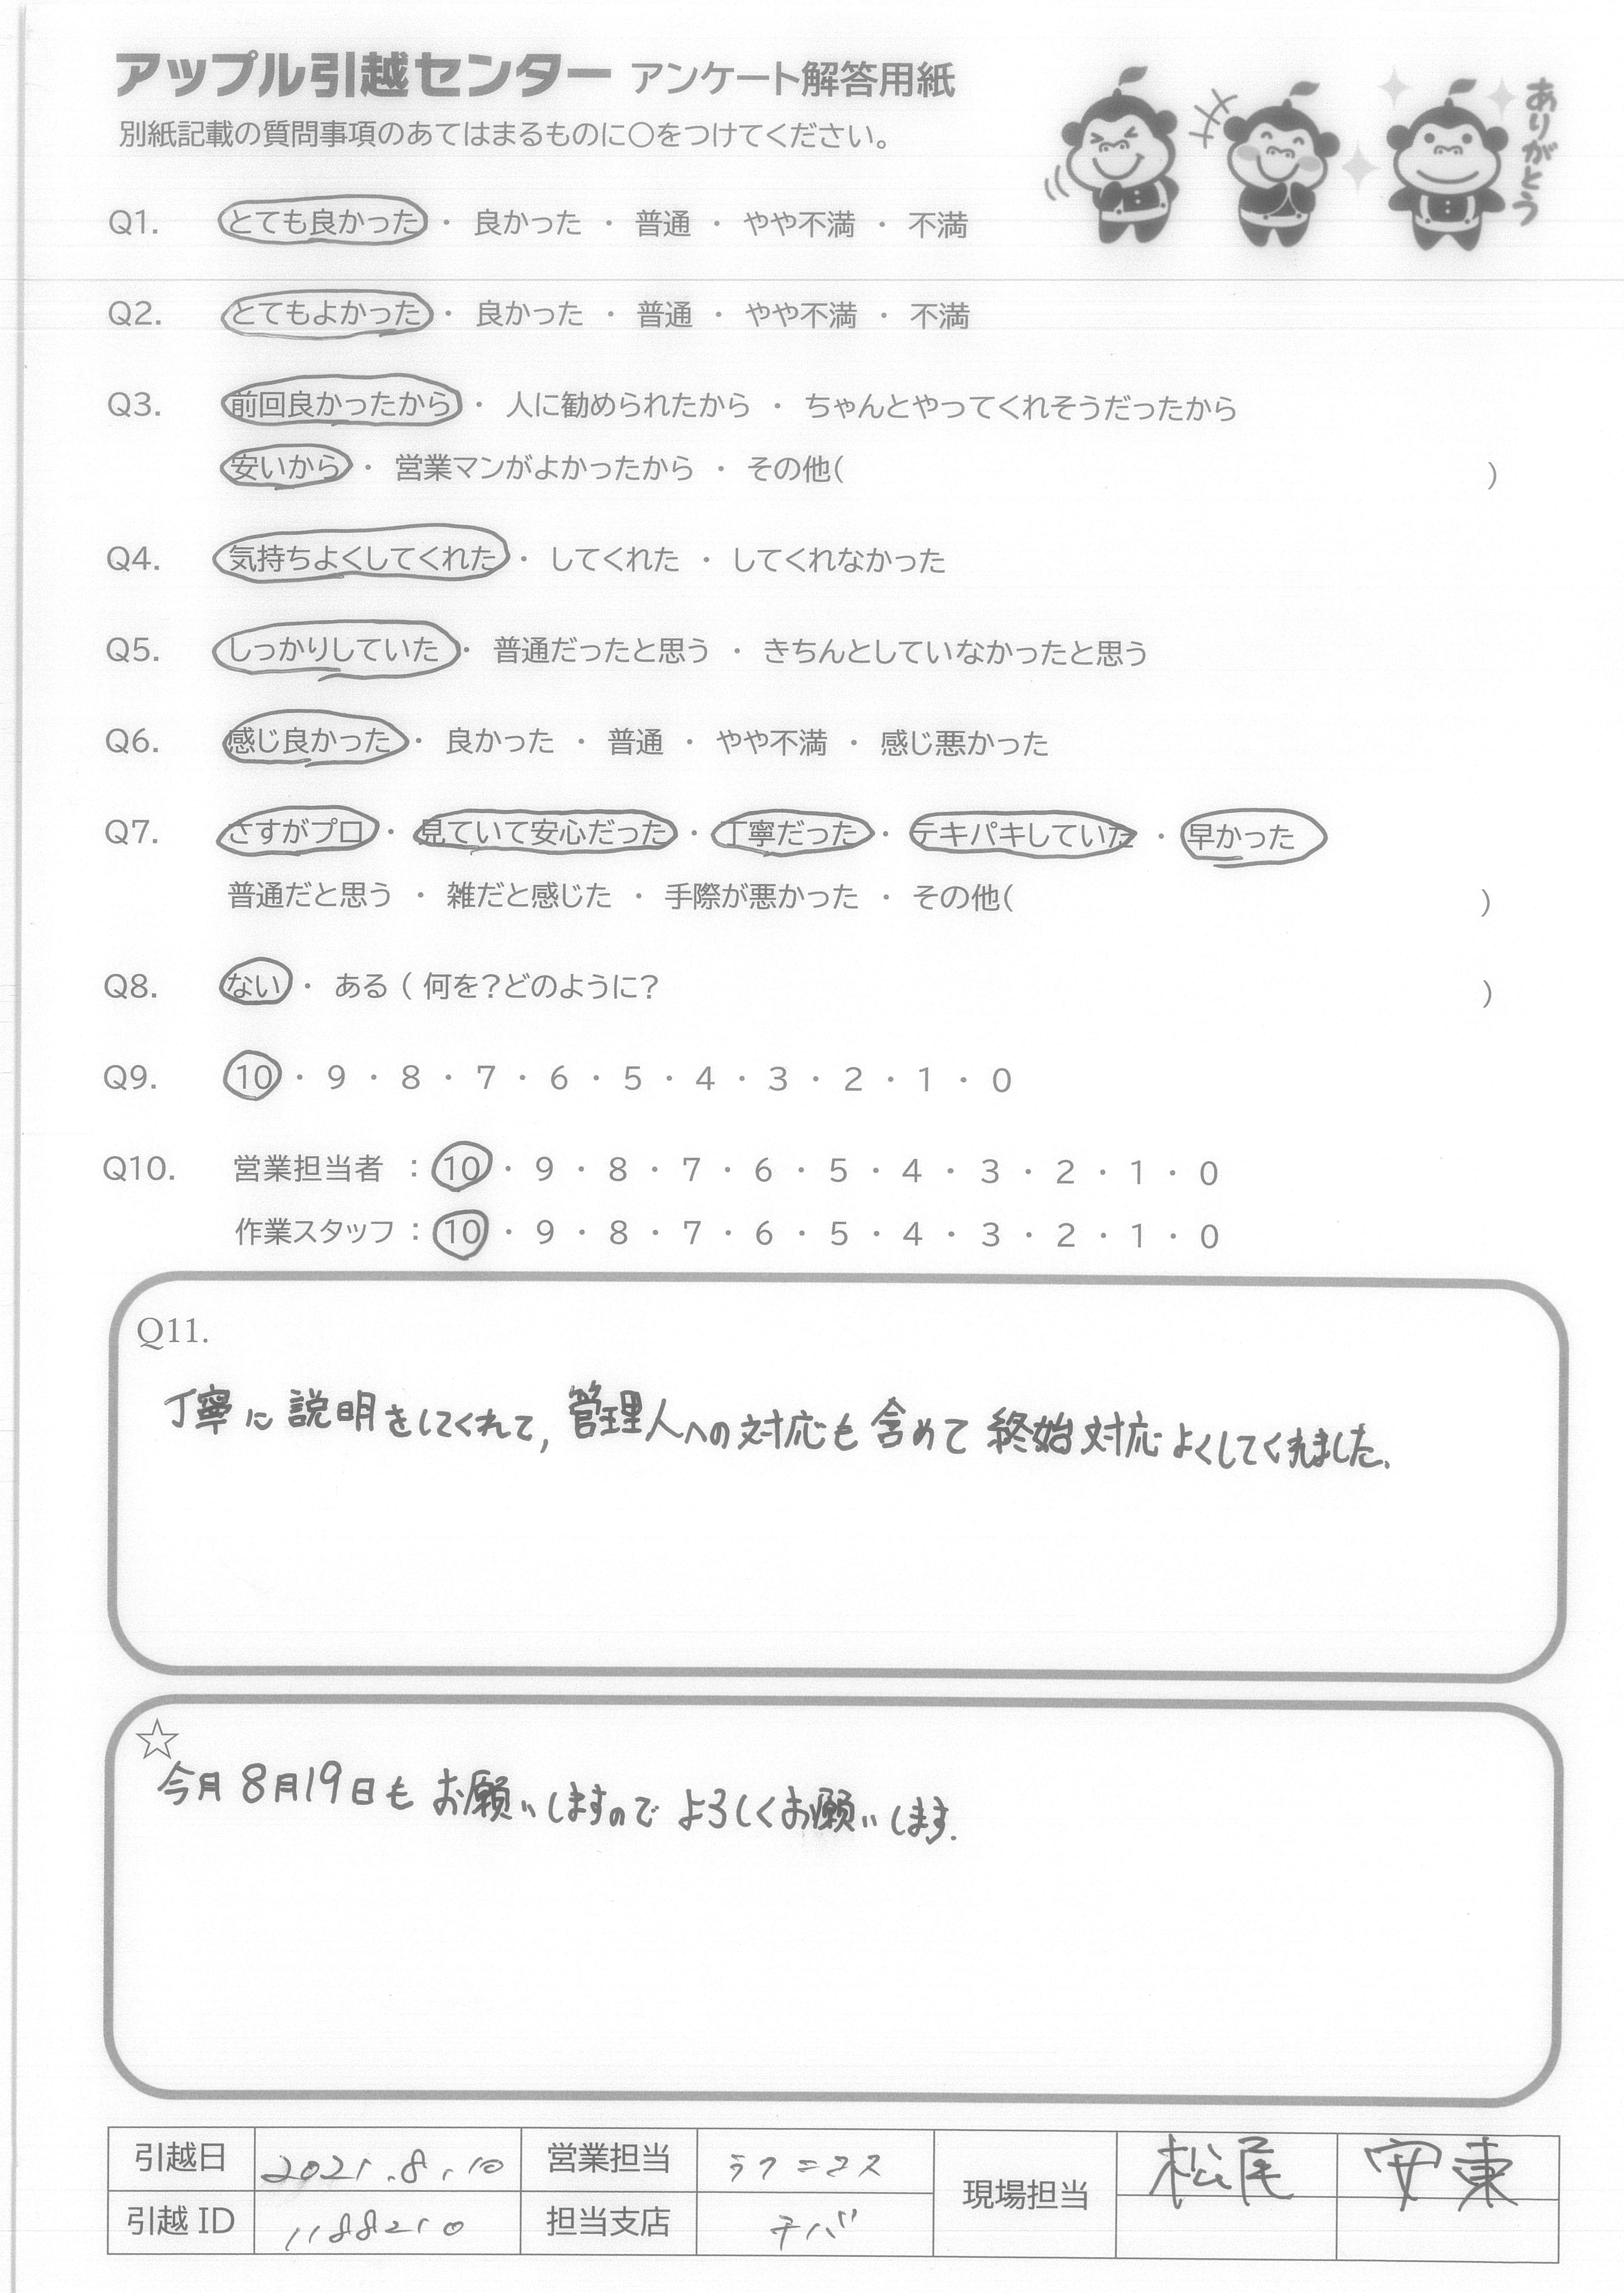 アップル引越センター アンケート解答用紙
別紙記載の質問事項のあてはまるものに○をつけてください。
ありがとう
Q1. とても良かった ・ 良かった ・ 普通 ・ やや不満 ・ 不満
Q2. とてもよかった ・ 良かった ・ 普通 ・ やや不満 ・ 不満
Q3. 前回良かったから ・ 人に勧められたから ・ ちゃんとやってくれそうだったから
安いから ・ 営業マンがよかったから ・ その他( )
Q4. 気持ちよくしてくれた ・ してくれた ・ してくれなかった
Q5. しっかりしていた ・ 普通だったと思う ・ きちんとしていなかったと思う
Q6. 感じ良かった ・ 良かった ・ 普通 ・ やや不満 ・ 感じ悪かった
Q7. さすがプロ ・ 見ていて安心だった ・ 丁寧だった ・ テキパキしていた ・ 早かった
普通だと思う ・ 雑だと感じた ・ 手際が悪かった ・ その他( )
Q8. ない ・ ある ( 何を?どのように? )
Q9. 10 ・ 9 ・ 8 ・ 7 ・ 6 ・ 5 ・ 4 ・ 3 ・ 2 ・ 1 ・ 0
Q10. 営業担当者 : 10 ・ 9 ・ 8 ・ 7 ・ 6 ・ 5 ・ 4 ・ 3 ・ 2 ・ 1 ・ 0
作業スタッフ : 10 ・ 9 ・ 8 ・ 7 ・ 6 ・ 5 ・ 4 ・ 3 ・ 2 ・ 1 ・ 0
Q11.
丁寧に説明をしてくれて, 管理人への対応も含めて終始対応よくしてくれました。
☆
今月8月19日もお願いしますのでよろしくお願いします.
引越日 2021.8.10 営業担当 現場担当 松尾 安東
引越 ID 1188210 担当支店 チバ